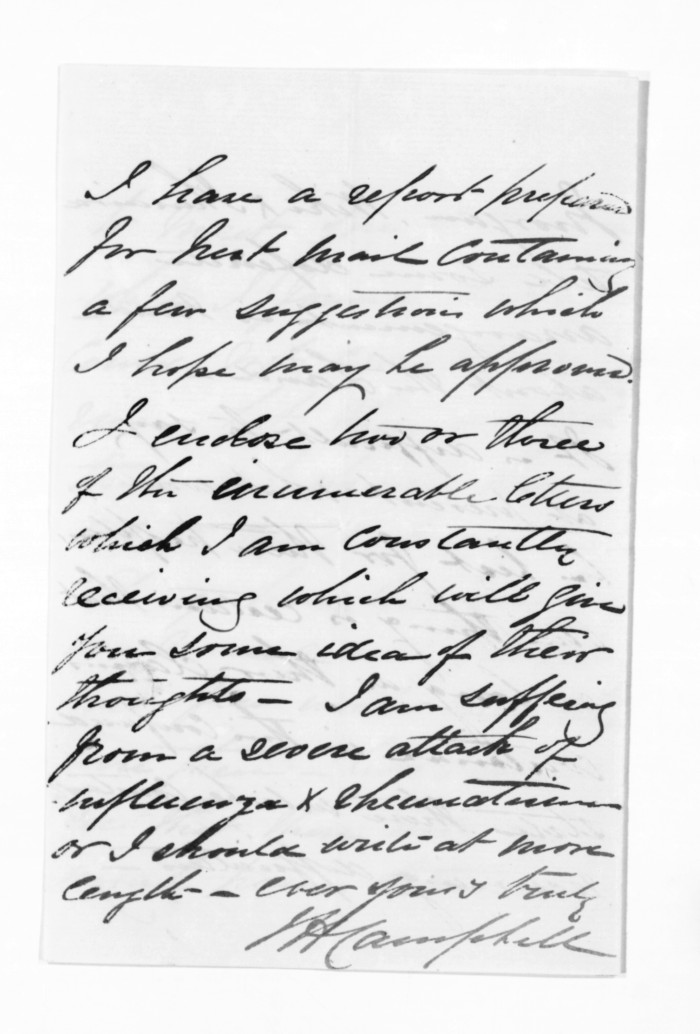 I have a report prepared
for next mail containing
a few suggestions which
I hope may be approved.
I enclose two or three
of the inumerable letters
which I am constantly
receiving which will give
you some idea of their
thoughts – I am suffering
from a severe attack of
influenza & rheumatism
or I should write at more
length – ever yours truly
JH Campbell